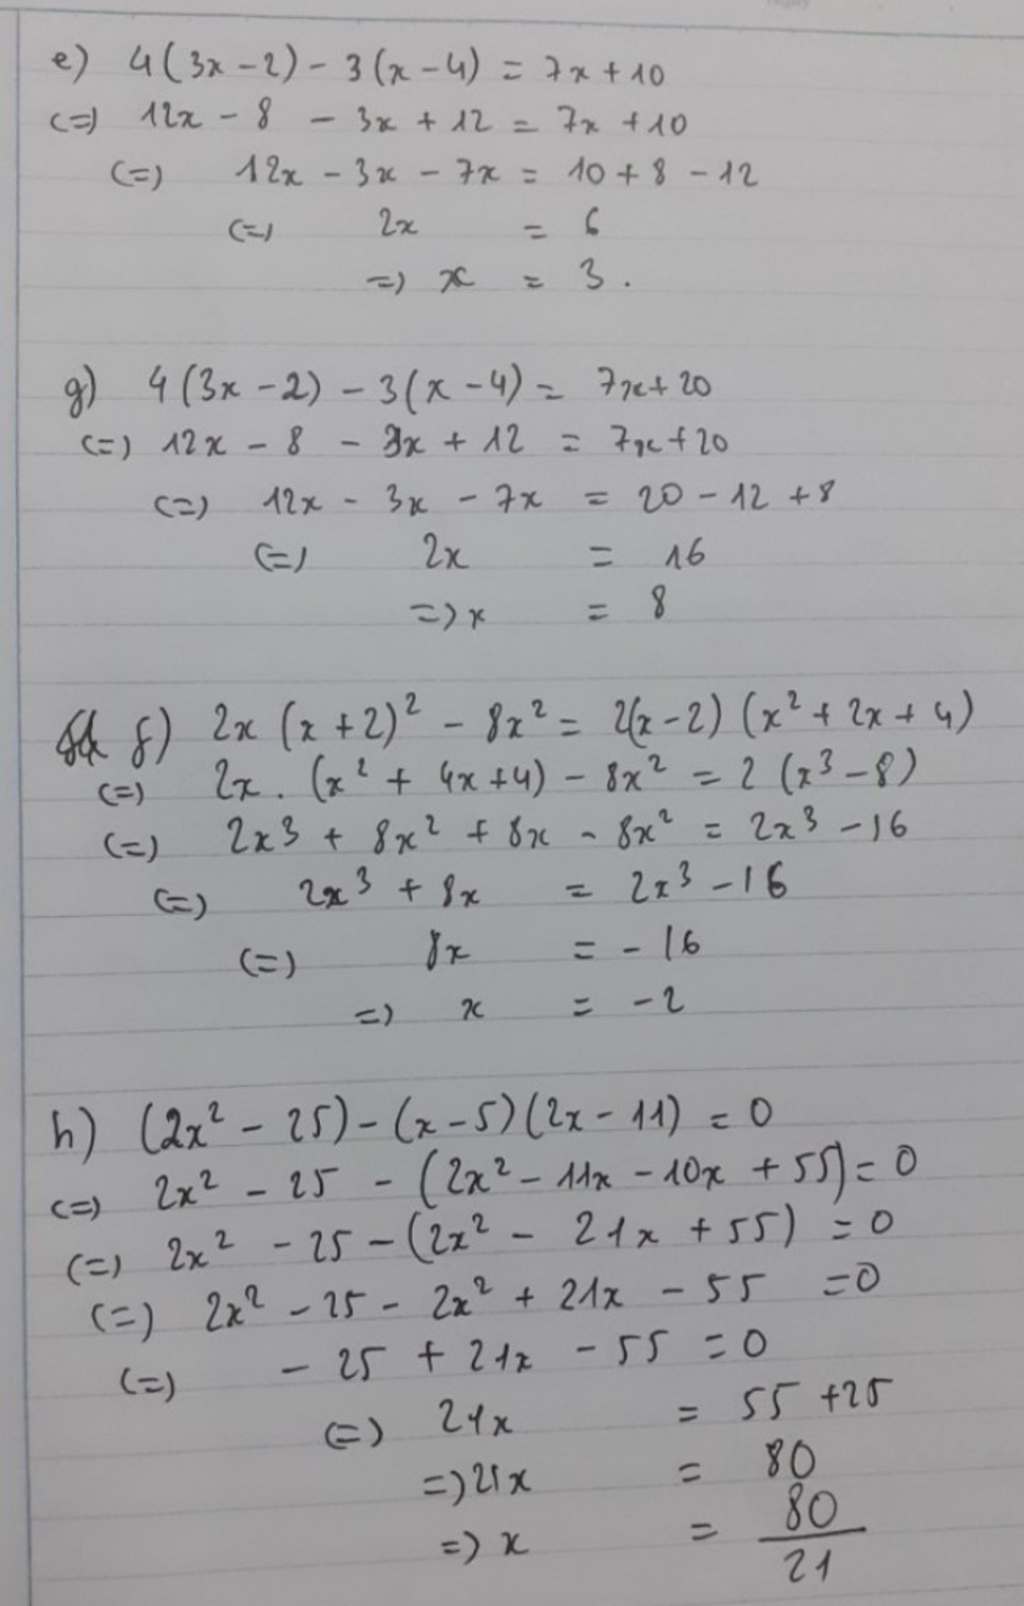 e) 4(3x - 2) - 3(x - 4) = 7x + 10
(=) 12x - 8 - 3x + 12 = 7x + 10
(=) 12x - 3x - 7x = 10 + 8 - 12
(=) 2x = 6
=) x = 3.
g) 4(3x - 2) - 3(x - 4) = 7x + 20
(=) 12x - 8 - 3x + 12 = 7x + 20
(=) 12x - 3x - 7x = 20 - 12 + 8
(=) 2x = 16
=) x = 8
f) 2x (x + 2)² - 8x² = 2(x - 2) (x² + 2x + 4)
(=) 2x . (x² + 4x + 4) - 8x² = 2 (x³ - 8)
(=) 2x³ + 8x² + 8x - 8x² = 2x³ - 16
(=) 2x³ + 8x = 2x³ - 16
(=) 8x = - 16
=) x = - 2
h) (2x² - 25) - (x - 5)(2x - 11) = 0
(=) 2x² - 25 - (2x² - 11x - 10x + 55) = 0
(=) 2x² - 25 - (2x² - 21x + 55) = 0
(=) 2x² - 25 - 2x² + 21x - 55 = 0
(=) - 25 + 21x - 55 = 0
(=) 21x = 55 + 25
=) 21x = 80
=) x = 80/21